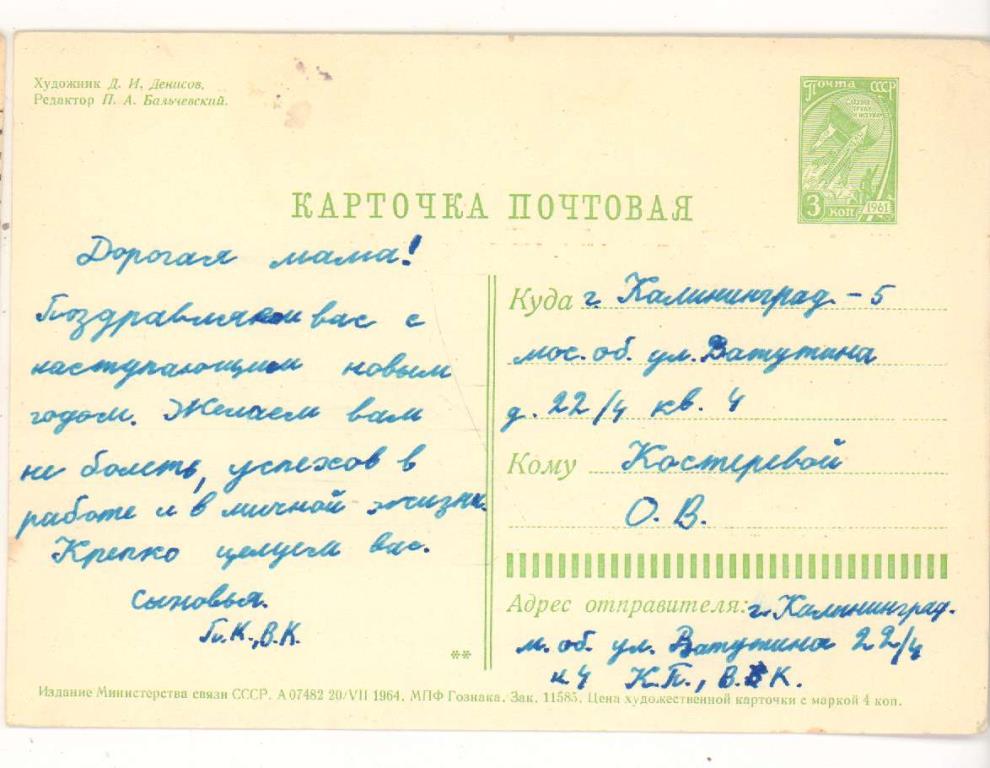 Художник Д. И. Денисов.
Редактор П. А. Бальчевский.
Почта СССР
3 коп
1961
КАРТОЧКА ПОЧТОВАЯ
Дорогая мама!
Поздравляем вас с
наступающим новым
годом. Желаем вам
не болеть, успехов в
работе и в личной жизни.
Крепко целуем вас.
сыновья.
В.К.
**
Куда г. Калининград - 5
мос. об. ул. Ватутина
д. 22/4 кв. 4
Кому Костеревой
О. В.
Адрес отправителя: г. Калининград.
м. об. ул. Ватутина 22/4
К.П., В. К.
Издание Министерства связи СССР. А 07482 20/VII 1964. МПФ Гознака. Зак. 11585. Цена художественной карточки с маркой 4 коп.